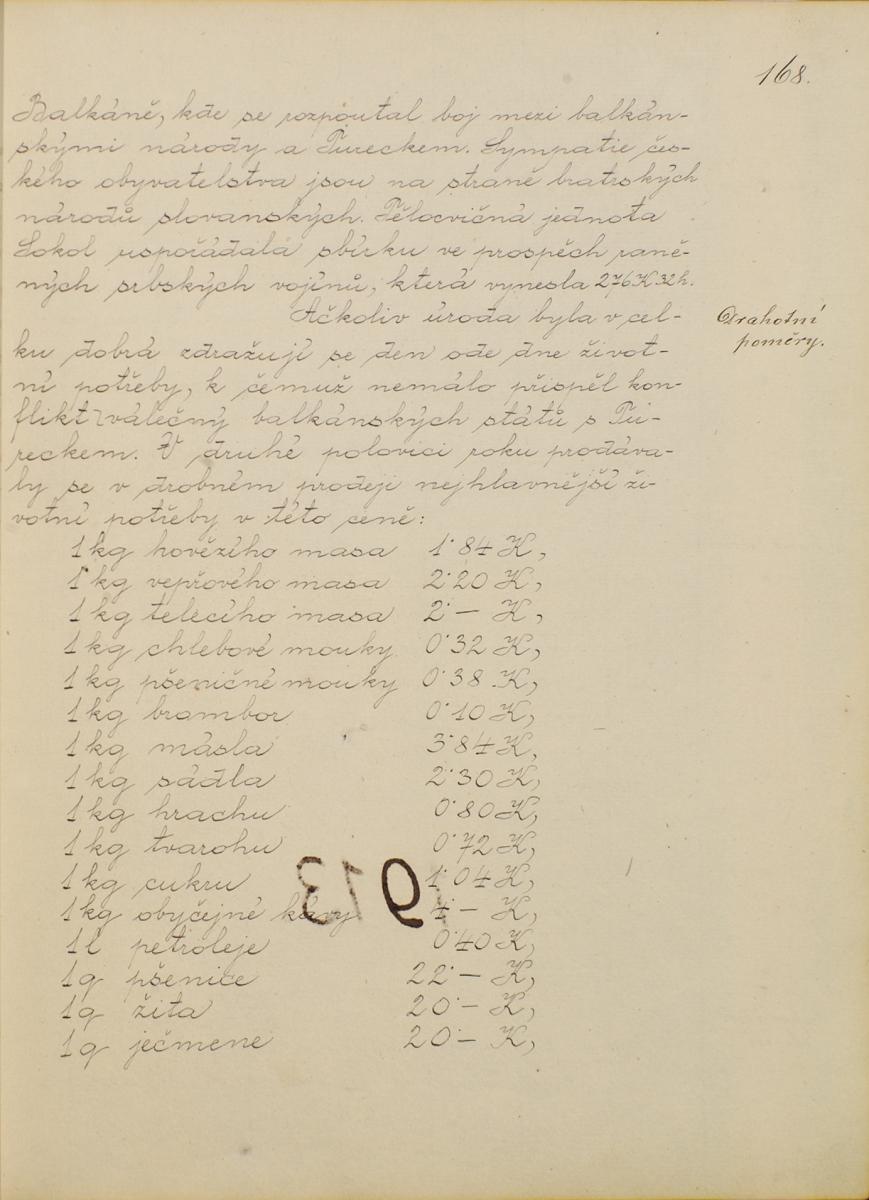 168.
Balkáně, kde se rozpoutal boj mezi balkán-
skými národy a Tureckem. Sympatie čes-
kého obyvatelstva jsou na straně bratrských
národů slovanských. Tělocvičná jednota
Sokol uspořádala sbírku ve prospěch raně-
ných srbských vojínů, která vynesla 276 K 32 h.
Ačkoliv úroda byla v cel-
Drahotní
poměry.
ku dobrá zdražují se den ode dne život-
ní potřeby, k čemuž nemálo přispěl kon-
flikt válečný balkánských států s Tu-
reckem. V druhé polovici roku prodáva-
ly se v drobném prodeji nejhlavnější ži-
votní potřeby v této ceně:
1 kg hovězího masa 1·84 K,
1 kg vepřového masa 2·20 K,
1 kg telecího masa 2·— K,
1 kg chlebové mouky 0·32 K,
1 kg pšeničné mouky 0·38 K,
1 kg brambor 0·10 K,
1 kg másla 3·84 K,
1 kg sádla 2·30 K,
1 kg hrachu 0·80 K,
1 kg tvarohu 0·72 K,
1 kg cukru 1·04 K,
1 kg obyčejné kávy 4·— K,
1 l petroleje 0·40 K,
1 q pšenice 22·— K,
1 q žita 20·— K,
1 q ječmene 20·— K,
1913